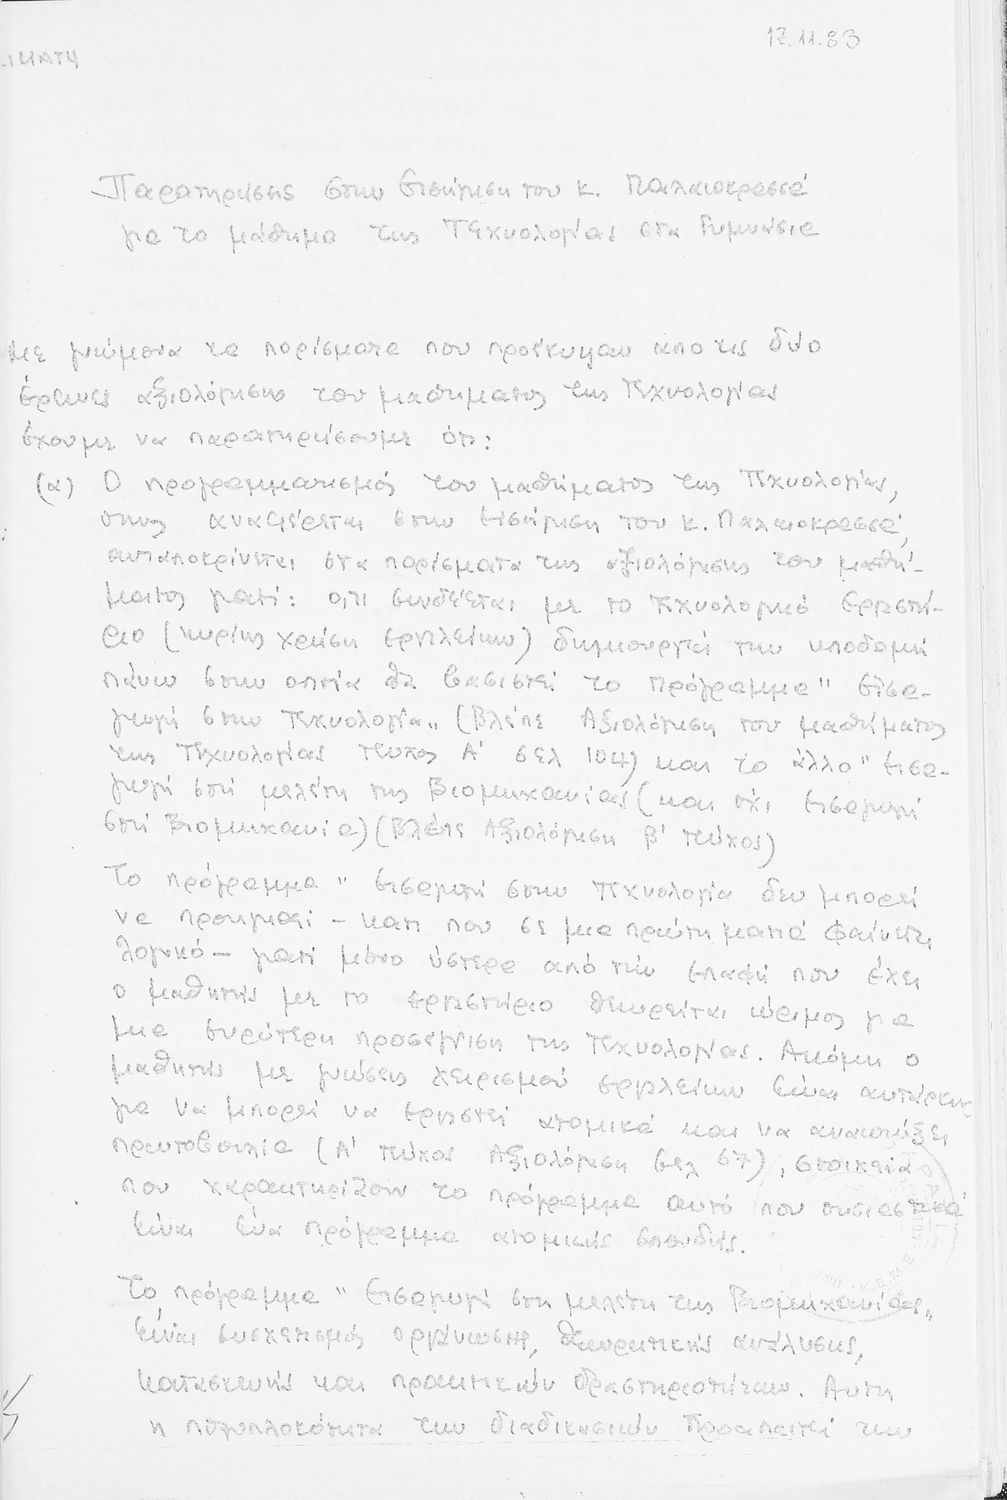 17.11.83
ΙΜΑΤΗ
Παρατηρήσεις στην εισήγηση του κ. Παλαιοκρασσά
για το μάθημα της Τεχνολογίας στα Γυμνάσια
Με γνώμονα τα πορίσματα που προέκυψαν απο τις δύο
έρευνες αξιολόγησης του μαθήματος της Τεχνολογίας
έχουμε να παρατηρήσουμε ότι:
(α) Ο προγραμματισμός του μαθήματος της Τεχνολογίας,
όπως αναφέρεται στην εισήγηση του κ. Παλαιοκρασσά,
ανταποκρίνεται στα πορίσματα της αξιολόγησης του μαθή-
ματος γιατί: ό,τι συνδέεται με το τεχνολογικό εργαστή-
ριο (κυρίως χρήση εργαλείων) δημιουργεί την υποδομή
πάνω στην οποία θα βασιστεί το πρόγραμμα "Εισα-
γωγή στην Τεχνολογία" (Βλέπε Αξιολόγηση του μαθήματος
της Τεχνολογίας τεύχος Α' σελ 104) και το άλλο "Εισα-
γωγή στή μελέτη της Βιομηχανίας (και όχι Εισαγωγή
στή Βιομηχανία) (Βλέπε Αξιολόγηση Β' τεύχος)
Το πρόγραμμα "Εισαγωγή στην Τεχνολογία δεν μπορεί
να προηγηθεί - κατι που σε μια πρώτη ματιά φαίνεται
λογικό - γιατί μόνο ύστερα από την επαφή που έχει
ο μαθητής με το εργαστήριο θεωρείται ώριμος για
μια ευρύτερη προσέγγιση της Τεχνολογίας. Ακόμη ο
μαθητής με γνώσεις χειρισμού εργαλείων είναι αυτάρκης
για να μπορεί να εργαστεί ατομικά και να αναπτύξει
πρωτοβουλία (Α' τεύχος Αξιολόγηση σελ 67), στοιχεία
που χαρακτηρίζουν το πρόγραμμα αυτό που ουσιαστικά
είναι ένα πρόγραμμα ατομικής σπουδής.
Κ.Ε.Μ.Ε.
Το πρόγραμμα "Εισαγωγή στη μελέτη της Βιομηχανίας"
είναι συσχετισμός οργάνωσης, θεωρητικής ανάλυσης,
κατασκευής και πρακτικών δραστηριοτήτων. Αυτη
η πολυπλοκότητα των διαδικασιών προαπαιτεί την